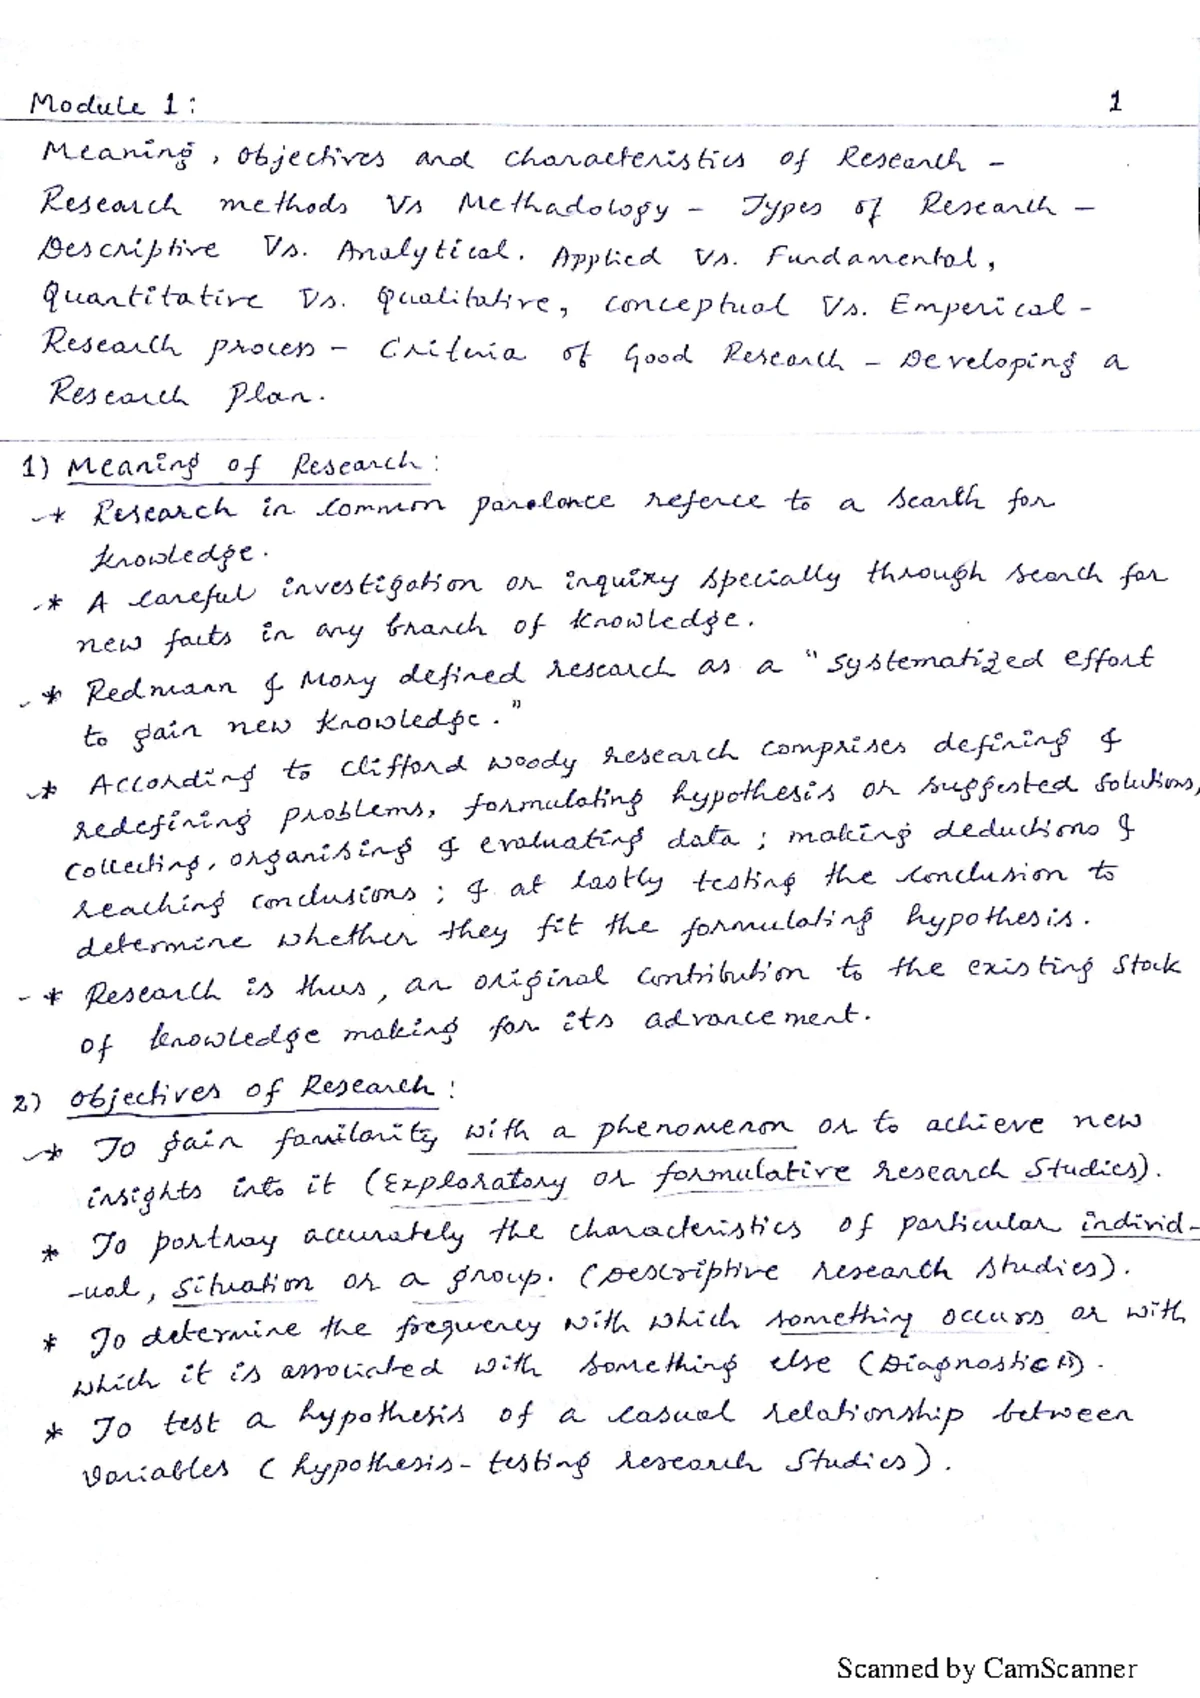 Module 1:
1
Meaning, objectives and characteristics of Research -
Research methods Vs Methadology - Types of Research -
Descriptive Vs. Analytical. Applied Vs. Fundamental,
Quantitative Vs. Qualitative, conceptual Vs. Emperical -
Research process - Criteria of Good Research - Developing a
Research Plan.
1) Meaning of Research:
* Research in common parolance referce to a search for
knowledge.
* A careful investigation or inquixy specially through search for
new facts in any branch of knowledge.
* Redmann & Mory defined research as a "systematized effort
to gain new knowledge."
* According to Clifford woody research comprises defining &
redefining problems, formulating hypothesis or suggested solutions,
collecting, organising & evaluating data; making deductions &
reaching conclusions; & at lastly testing the conclusion to
determine whether they fit the formulating hypothesis.
* Research is thus, an original contribution to the existing stock
of knowledge making for its advancement.
2) Objectives of Research:
* To gain familarity with a phenomenon or to achieve new
insights into it (Exploratory or formulative research Studies).
* To portray accurately the characteristics of particular individ-
-ual, situation or a group. (Descriptive research studies).
* To determine the frequency with which something occurs or with
which it is associated with something else (Diagnostic).
* To test a hypothesis of a casual relationship between
variables (hypothesis-testing research Studies).
Scanned by CamScanner